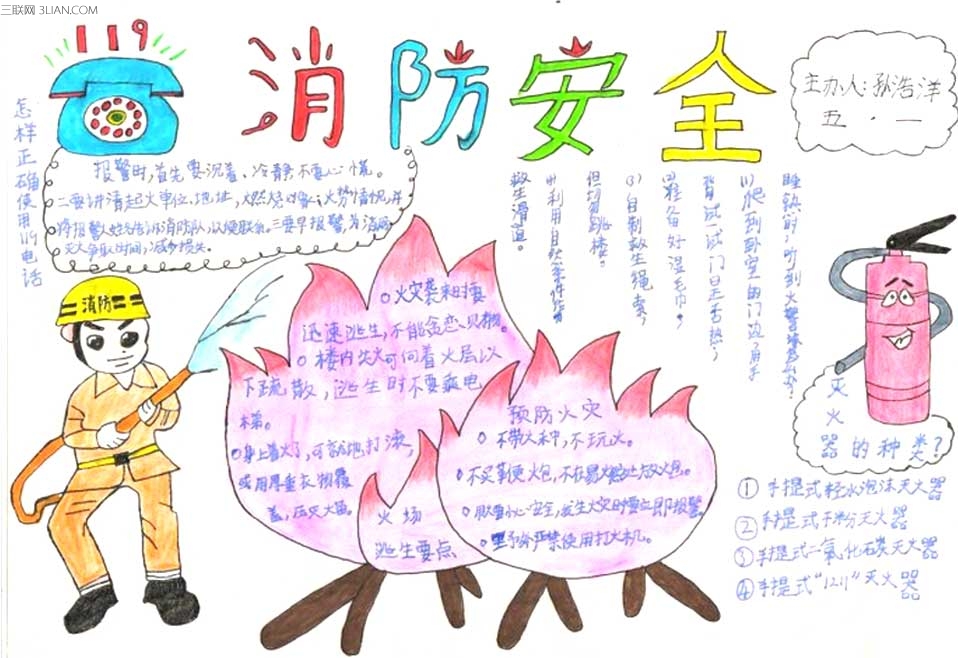 三联网 3LIAN.COM
119
消防安全
主办人:孙浩洋
五.一
怎样正确使用119电话
报警时,首先要沉着、冷静不要心慌。
二要讲清起火单位、地址,燃烧对象、火势情况,并
将报警人姓名告诉消防队,以便联系。三要早报警,为消防
灭火争取时间,减少损失。
消防
火灾袭来时要
迅速逃生,不能贪恋财物。
楼内失火可向着火层以
下疏散,逃生时不要乘电
梯。
身上着火了,可就地打滚,
或用厚重衣物覆
盖,压灭火苗。
火场
逃生要点
预防火灾
不带火种,不玩火。
不买 火炮,不在易燃处放火炮。
安全,发生火灾时要立即报警
野外严禁使用打火机。
睡熟时,听到火警
(1)爬到卧室的门边,用手
背试一试门是否热;
(2)准备好湿毛巾;
(3)自制救生绳索,
但切勿跳楼。
(4)利用自然条件
救生滑道。
灭火器的种类?
①手提式轻水泡沫灭火器
②手提式干粉灭火器
③手提式二氧化碳灭火器
④手提式“1211”灭火器